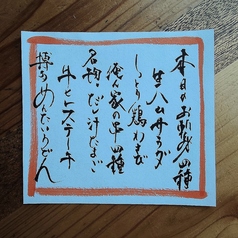 本日のお刺身四種
生ハムサラダ
しっとり鶏わさび
俺ん家の串四種
名物・だし汁たまご
牛ヒレステーキ
博多めんたいうどん